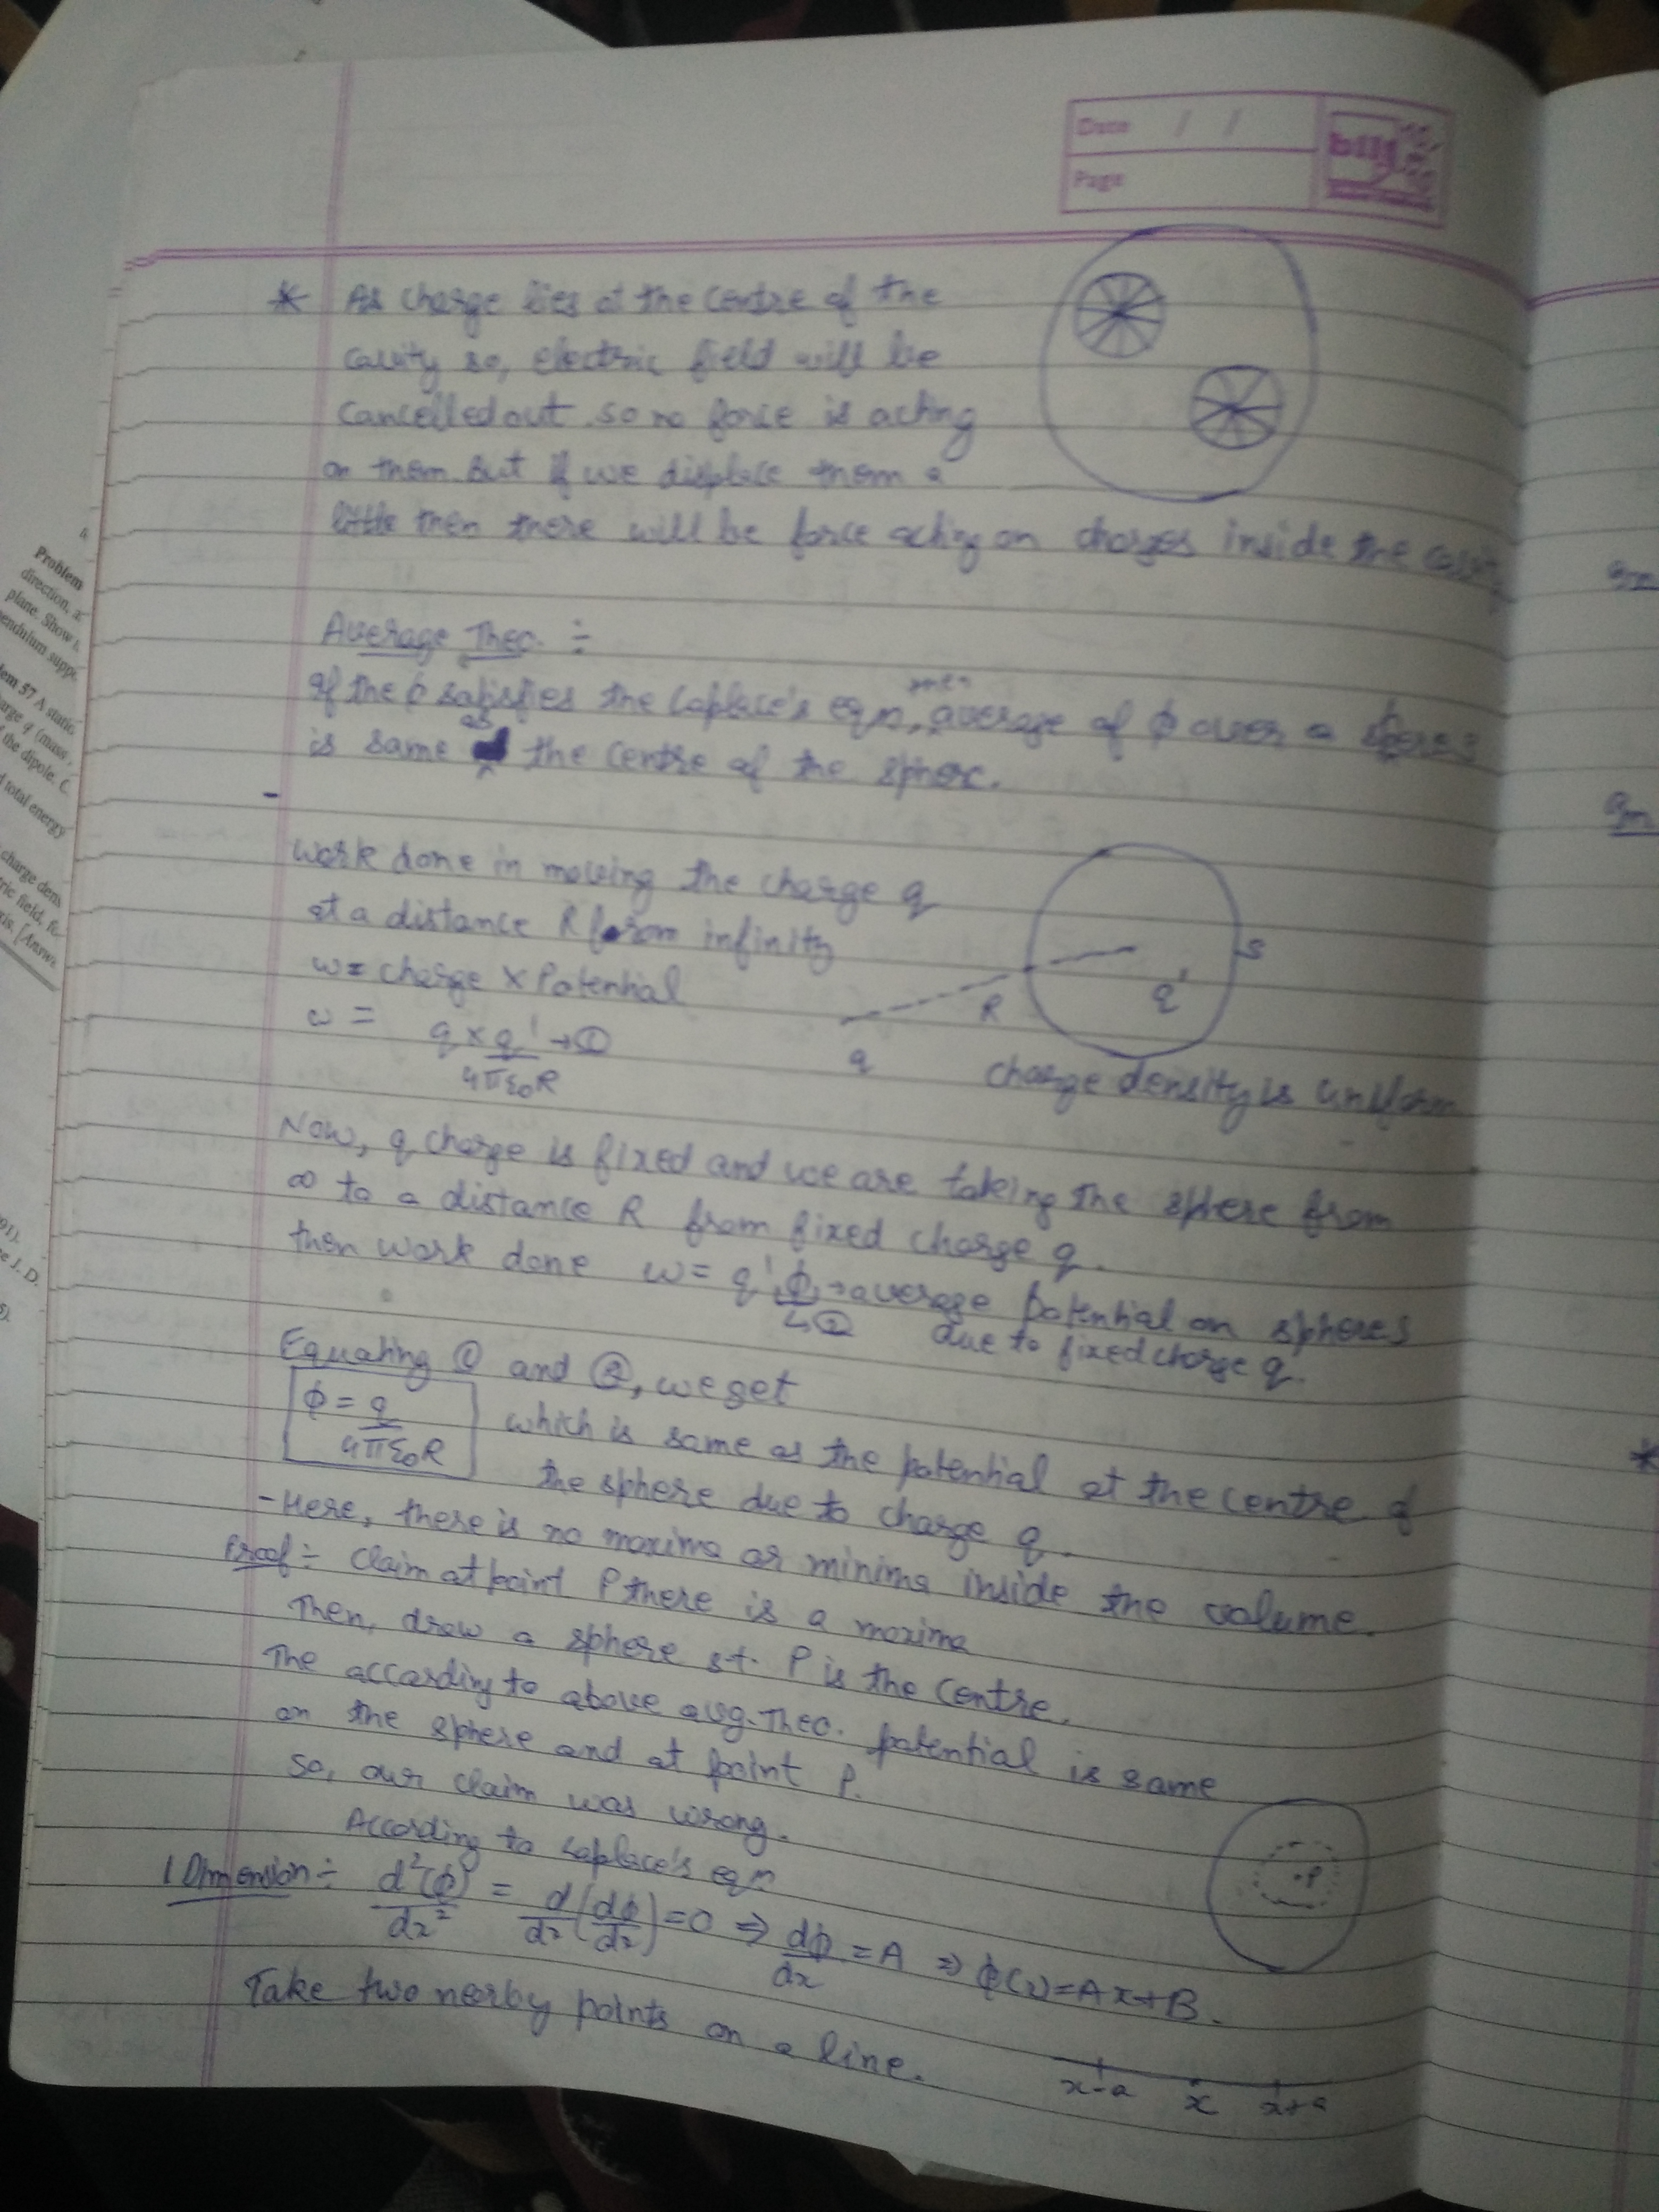 Date / /
Page
* As charge lies at the centre of the
cavity so, electric field will be
cancelled out so no force is acting
on them. But if we displace them a
little then there will be force acting on charges inside the cavity
Average Theo. ÷
If the ϕ satisfies the Laplace's eqn, then average of ϕ over a sphere
is same as the centre of the sphere.
-
Work done in moving the charge q
at a distance R from infinity
w = charge × Potential
w = q × q' / 4πε₀R → ①
S
R
q'
q
charge density is uniform
Now, q charge is fixed and we are taking the sphere from
∞ to a distance R from fixed charge q.
then work done w = q'ϕ → average potential on spheres
↳ ② due to fixed charge q.
Equating ① and ②, we get
ϕ = q / 4πε₀R which is same as the potential at the centre of
the sphere due to charge q.
- Here, there is no maxima or minima inside the volume.
Proof ÷ Claim at point P there is a maxima
Then, draw a sphere s.t. P is the centre.
The according to above avg. Theo. potential is same
on the sphere and at point P.
So, our claim was wrong.
P
According to Laplace's eqn
1 Dimension ÷ d²(ϕ)/dx² = d/dx (dϕ/dx) = 0 ⇒ dϕ/dx = A ⇒ ϕ(x) = Ax + B.
Take two nearby points on a line.
x-a x x+a
Problem
direction, z
plane. Show
pendulum supp
lem 57 A static
arge q (mass
the dipole.
total energy
charge dens
tric field, fe
xis. [Answ
91).
e J. D.